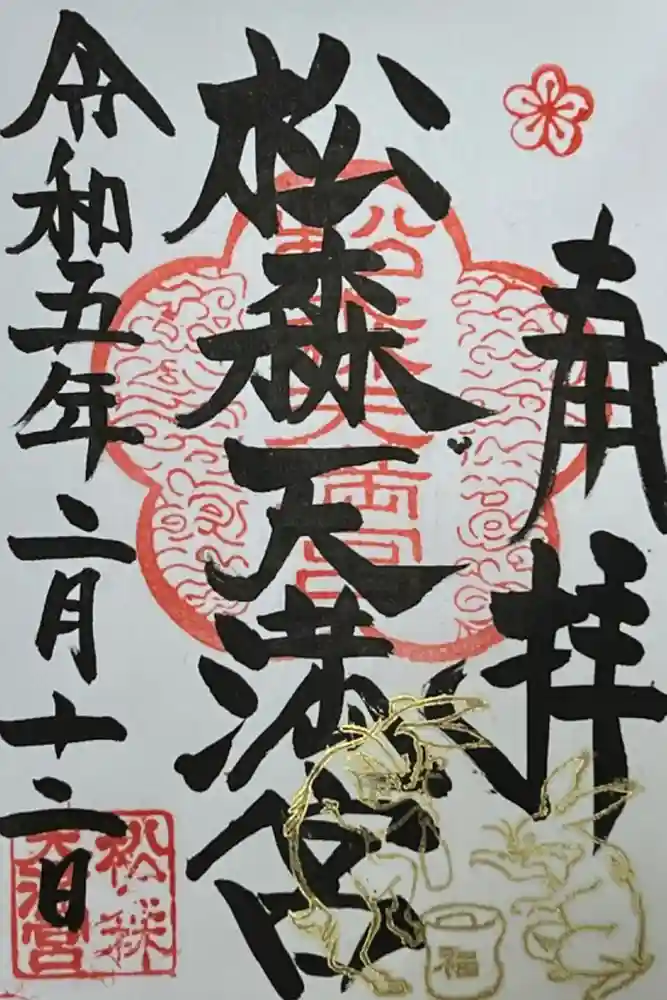 奉拝
松森天満宮
松森天満宮
令和五年二月十二日
松森
天満宮
福